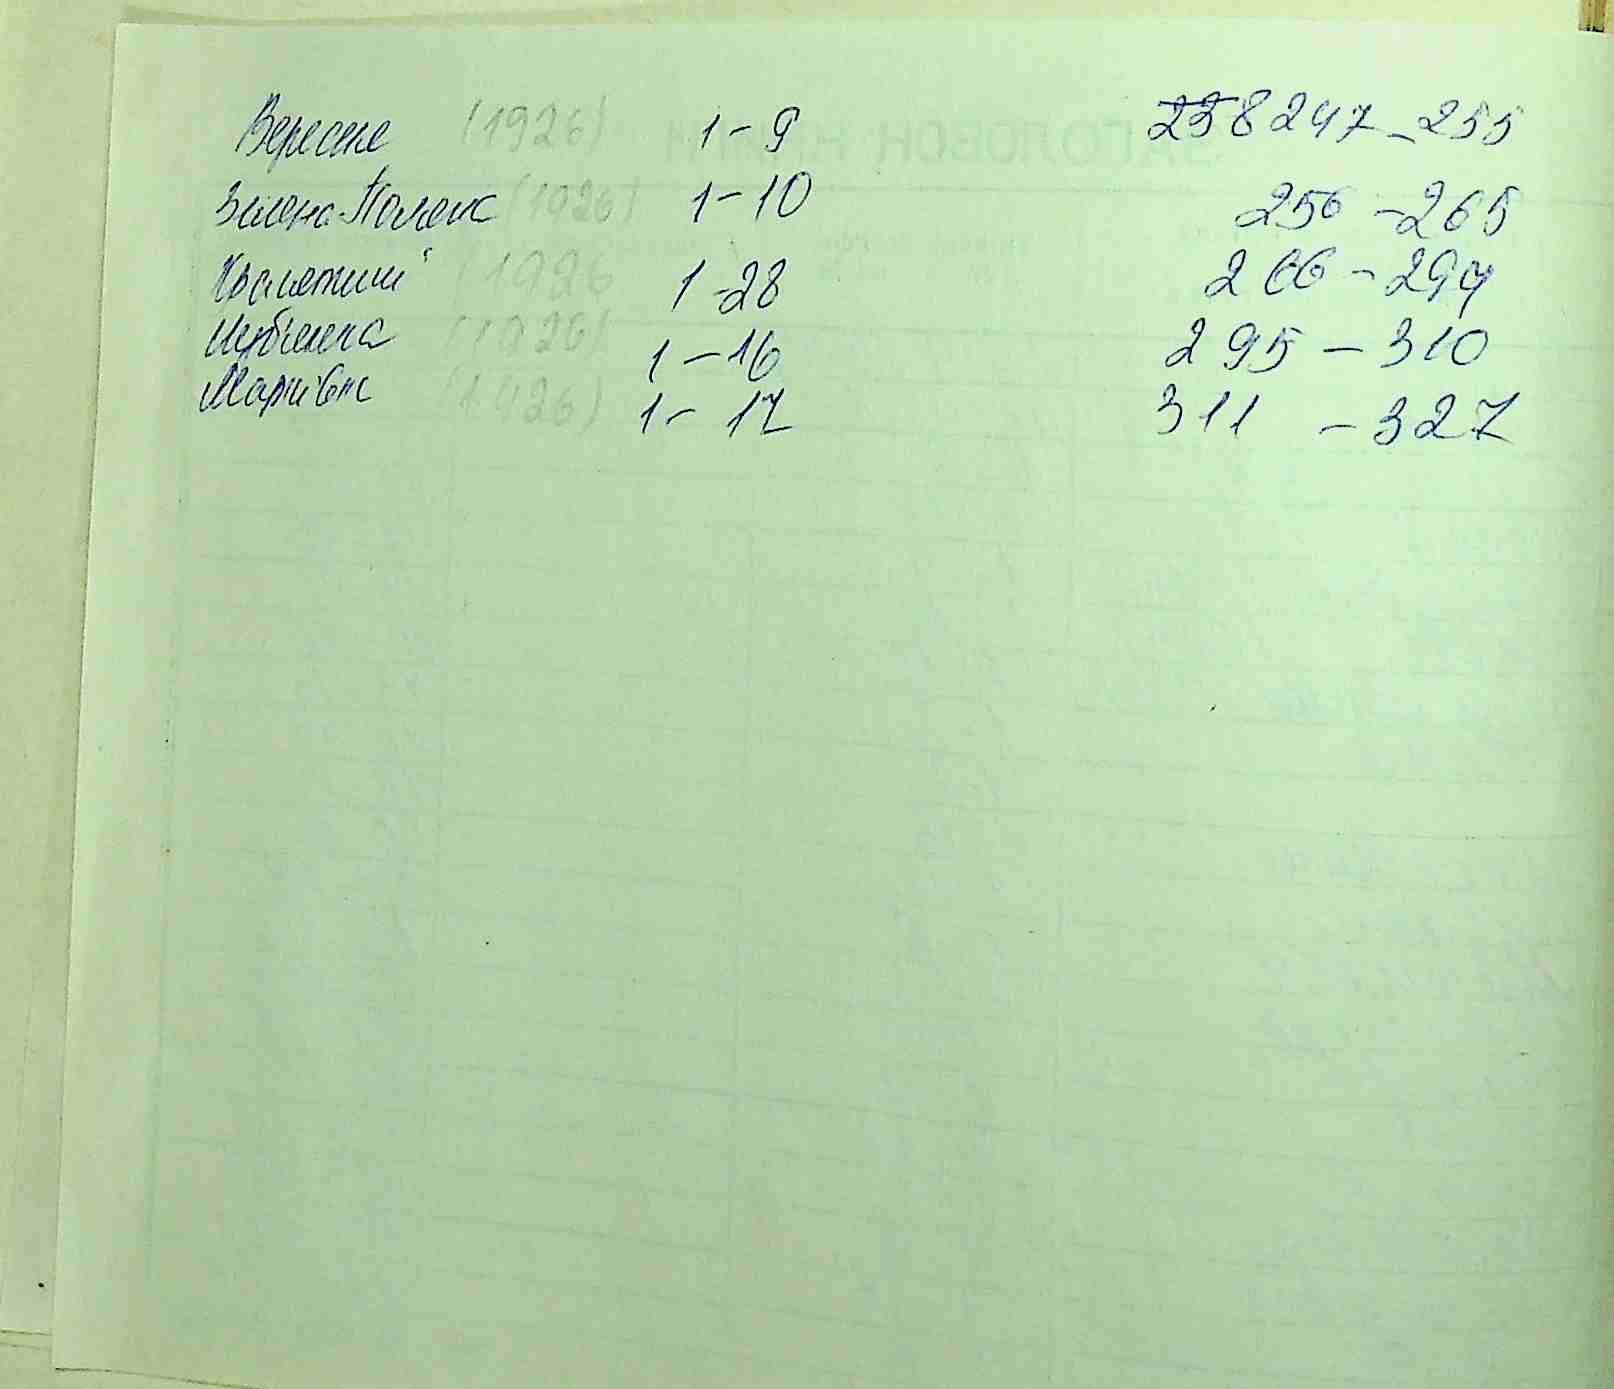 Вересне (1926) 1-9 238 247-255
Зелена Поляна (1926) 1-10 256-265
(1926 1-28 266-294
(1926) 1-16 295-310
Мар'янівка (1926) 1-17 311-327